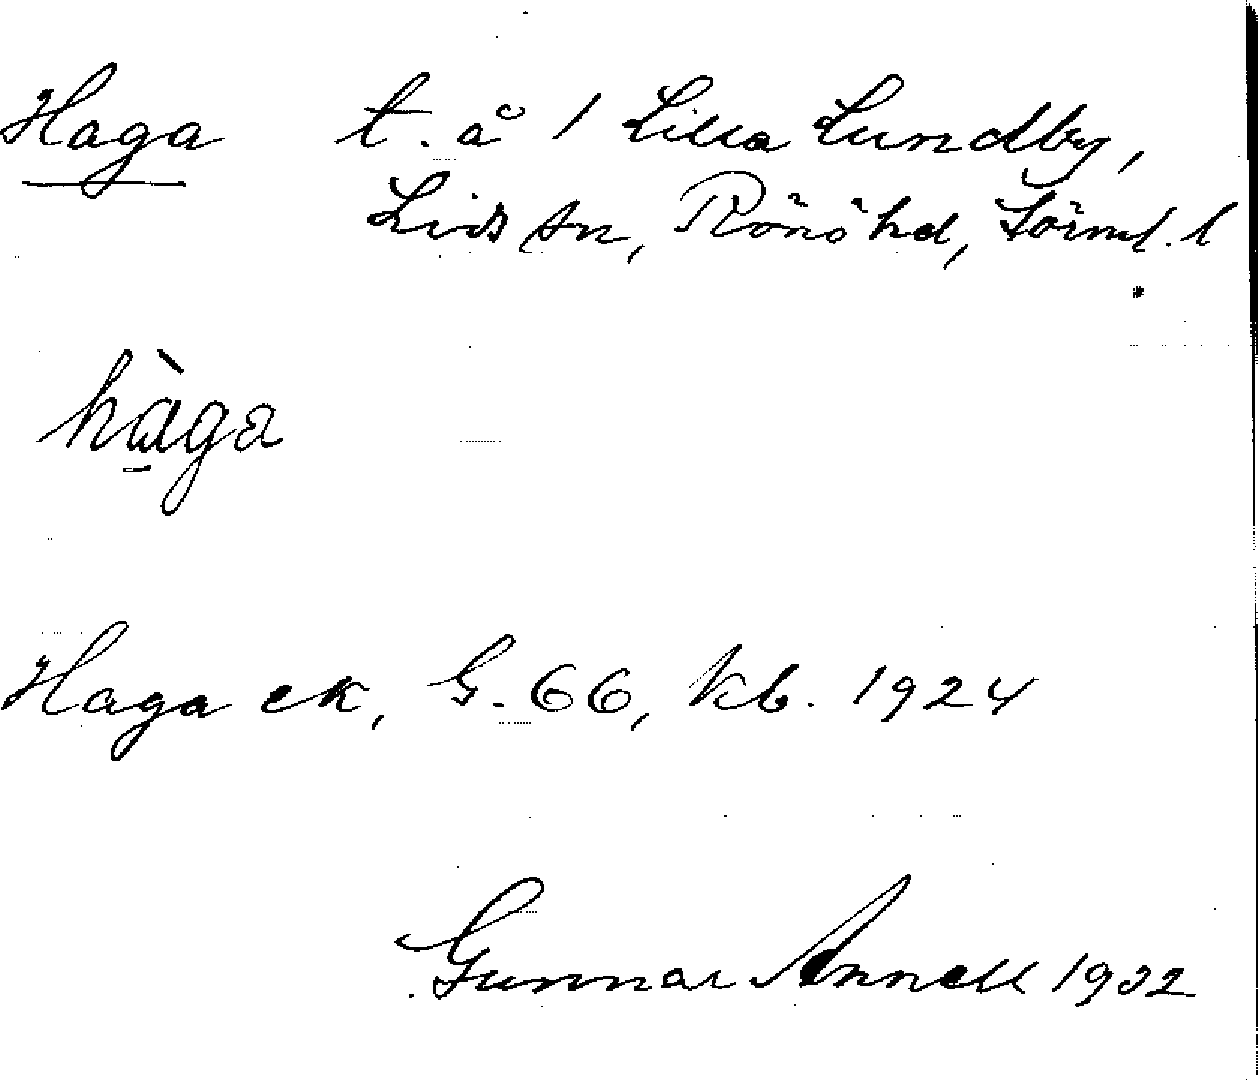 Haga t. å 1 Lilla Lundby,
Lids sn, Rönö hd, Sörml. l
.
hàga
Haga ek, G. 66, kb. 1924
Gunnar Annell 1932